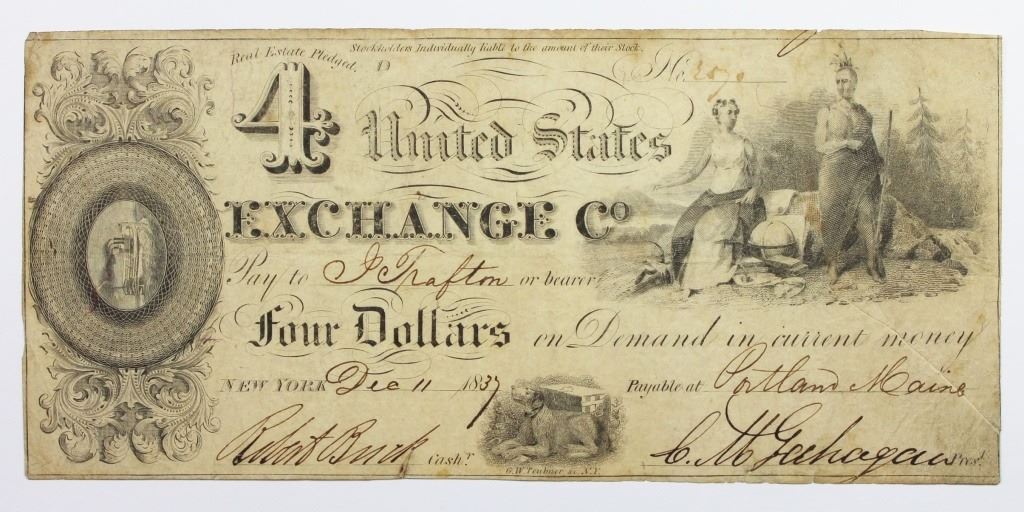 Stockholders Individually liable to the amount of their Stock.
Real Estate Pledged. D
4 United States No.
EXCHANGE Co
Pay to J Trafton or bearer
Four Dollars on Demand in current money
NEW YORK Dec 11 1837 Payable at Portland Maine
Robert Buck Cashr. C. McGeehagan Prest.
G.W. Teubner sc. N.Y.